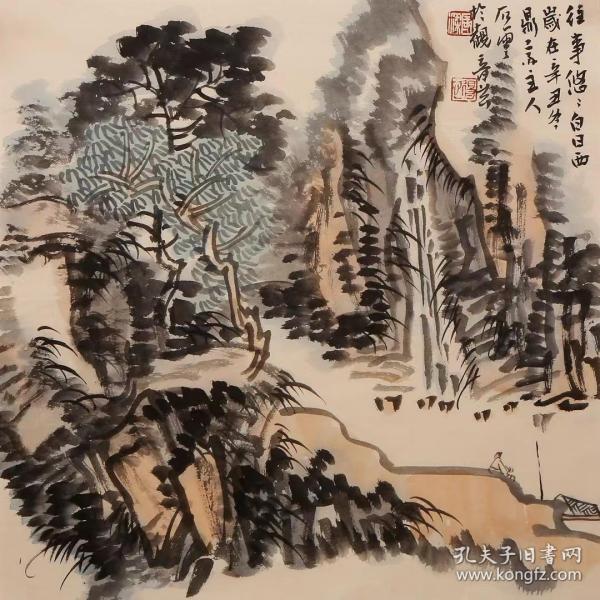 往事悠〻白日西
歲在辛丑冬
鼎雲主人
石雲
於觀音草
孔夫子旧书网
www.kongfz.com